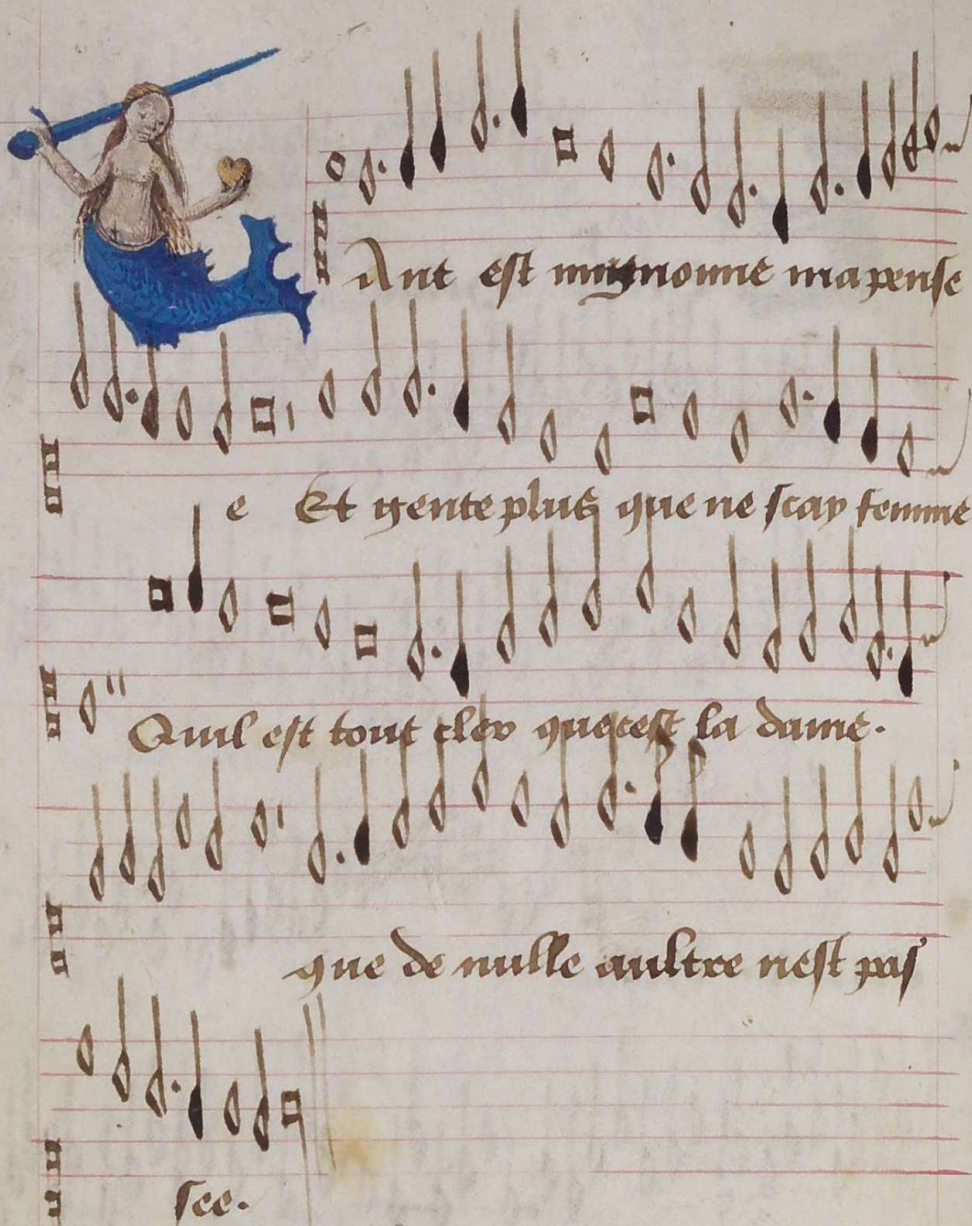 Ant est mignonne ma pense
e Et gente plus que ne scay femme
Quil est tout cler que cest la dame.
que de nulle aultre nest pas
see.